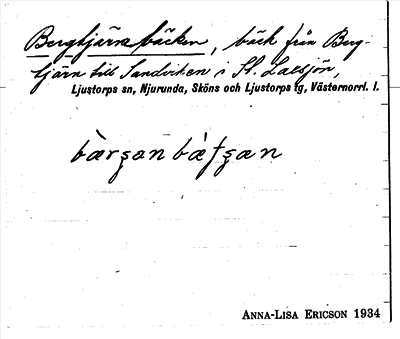 Bergtjärnsbäcken, bäck från Berg-
tjärn till Sandviken i St. Laxsjön,
Ljustorps sn, Njurunda, Sköns och Ljustorps tg, Västernorrl. l.
ANNA-LISA ERICSON 1934